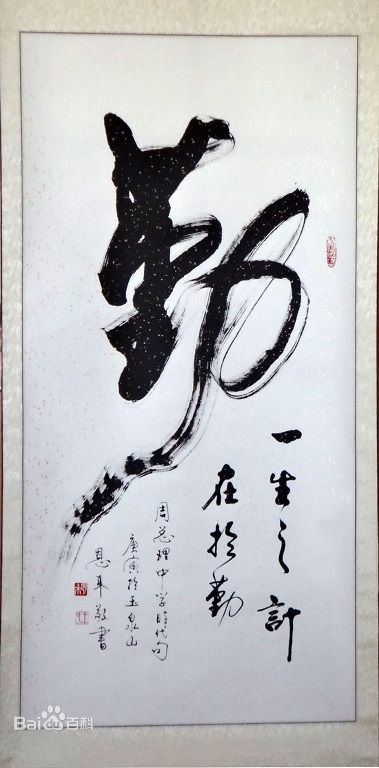 勤
一生之計
在於勤
周总理中学时代句
庚寅於玉泉山
恩年敬書
Bai百科